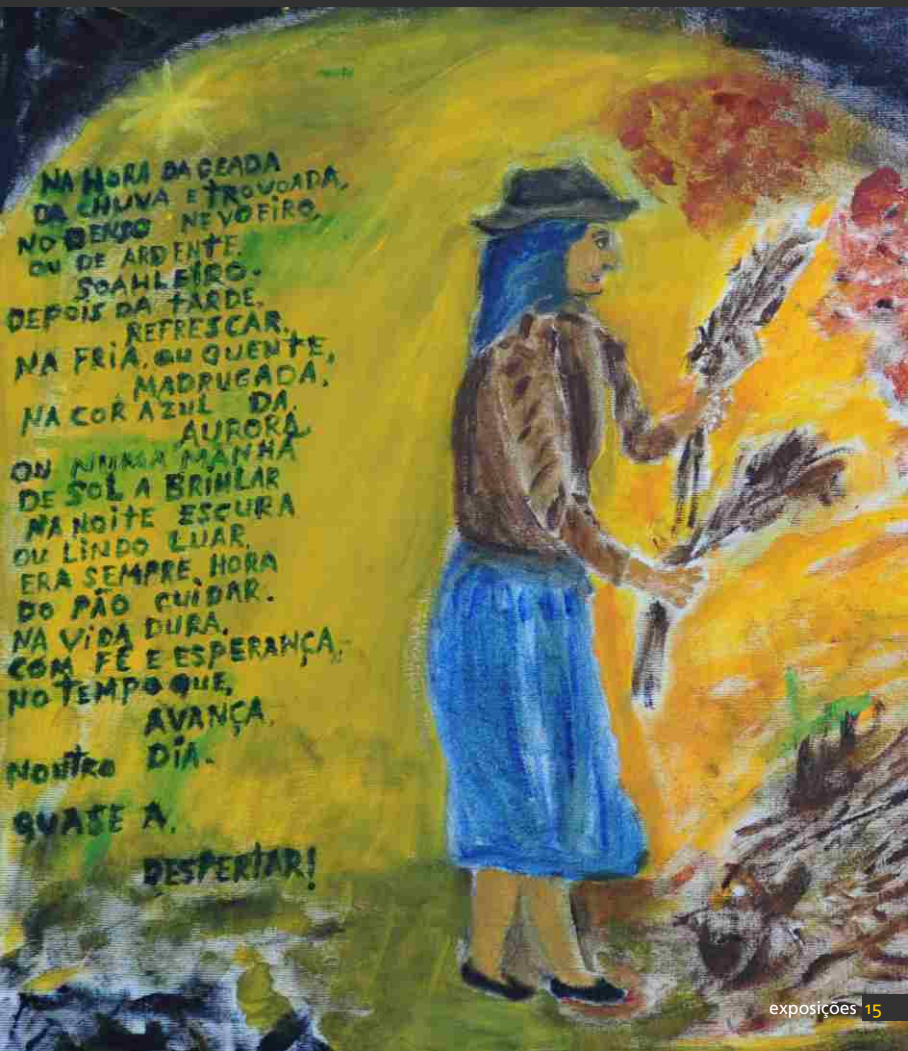 NA HORA DA GEADA
DA CHUVA E TROVOADA,
NO DENSO NEVOEIRO,
OU DE ARDENTE.
SOAHLEIRO.
DEPOIS DA TARDE,
REFRESCAR,
NA FRIA, OU QUENTE,
MADRUGADA,
NA COR AZUL DA,
AURORA
OU NUMA MANHÃ
DE SOL A BRIHLAR
NA NOITE ESCURA
OU LINDO LUAR,
ERA SEMPRE, HORA
DO PÃO CUIDAR.
NA VIDA DURA,
COM FÉ E ESPERANÇA,
NO TEMPO QUE,
AVANÇA,
NOUTRO DIA.
QUASE A,
DESPERTAR!
exposições 15